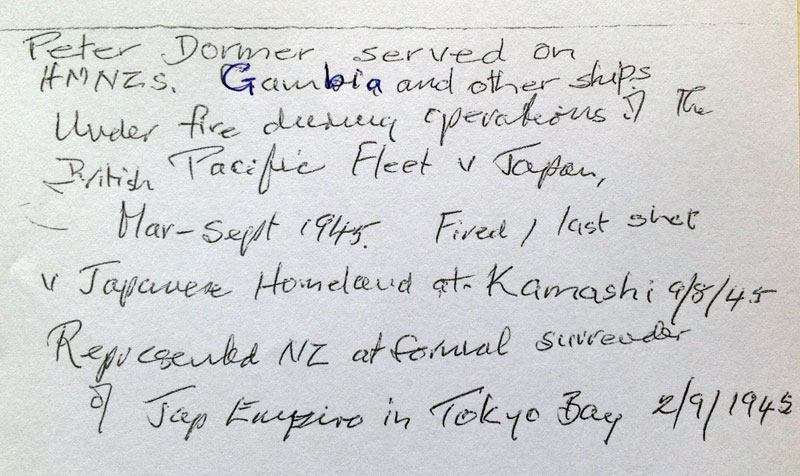 Peter Dormer served on
HMNZS. Gambia and other ships
Under fire during operations of The
British Pacific Fleet v Japan,
Mar-Sept 1945. Fired / last shot
v Japanese Homeland at Kamashi 9/8/45
Represented NZ at formal surrender
of Jap Empire in Tokyo Bay 2/9/1945